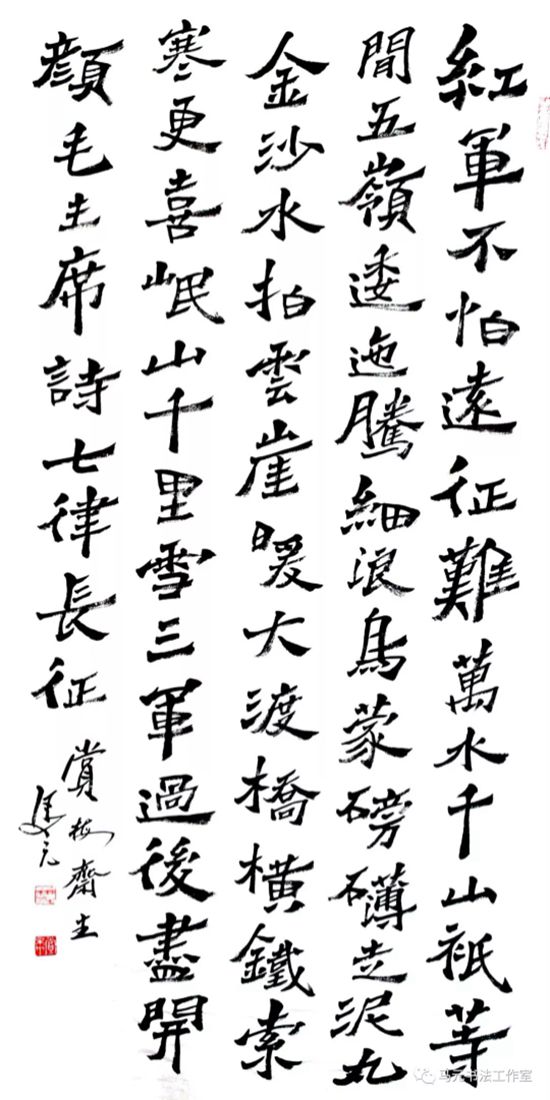 紅軍不怕遠征難萬水千山衹等
閒五嶺逶迤騰細浪烏蒙磅礴走泥丸
金沙水拍雲崖暖大渡橋橫鐵索
寒更喜岷山千里雪三軍過後盡開
顏毛主席詩七律長征
賞梅齋主
馬元
马元书法工作室